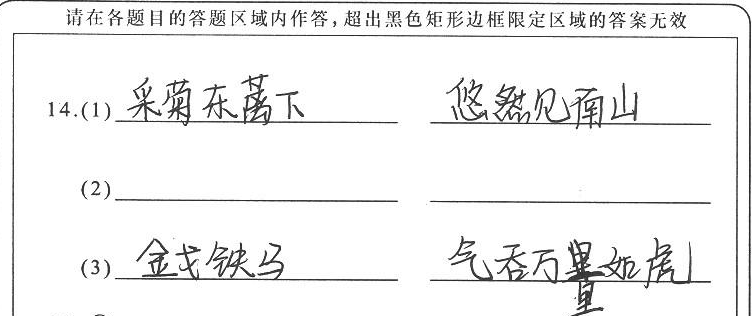 请在各题目的答题区域内作答，超出黑色矩形边框限定区域的答案无效
14.(1) 采菊东篱下 悠然见南山
(2)
(3) 金戈铁马 气吞万里如虎